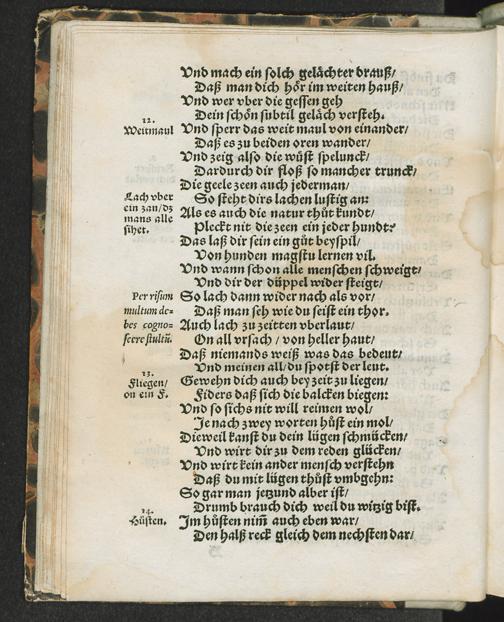 Vnd mach ein solch gelächter drauß/
Daß man dich hör im weiten hauß/
Vnd wer vber die gessen geh
Dein schön subtil geläch versteh.
12.
Weitmaul
Vnd sperr das weit maul von einander/
Daß es zu beiden oren wander/
Vnd zeig also die wüst spelunck/
Dardurch dir floß so mancher trunck/
Die geele zeen auch jederman/
Lach vber
ein zan/dz
mans alle
sihet.
So steht dirs lachen lustig an:
Als es auch die natur thůt kundt/
Pleckt nit die zeen ein jeder hundt?
Das laß dir sein ein gůt beyspil/
Von hunden magstu lernen vil.
Vnd wann schon alle menschen schweigt/
Vnd dir der düppel wider steigt/
Per risum
multum de-
bes cogno-
scere stultũ.
So lach dann wider nach als vor/
Daß man seh wie du seist ein thor.
Auch lach zu zeitten vberlaut/
On all vrsach / von heller haut/
Daß niemands weiß was das bedeut/
Vnd meinen all/du spotst der leut.
13.
Fliegen/
on ein F.
Gewehn dich auch bey zeit zu liegen/
Fiders daß sich die balcken biegen:
Vnd so sichs nit will reimen wol/
Je nach zwey worten hůst ein mol/
Dieweil kanst du dein lügen schmücken/
Vnd wirt dir zu dem reden glücken/
Vnd wirt kein ander mensch verstehn
Daß du mit lügen thůst vmbgehn:
So gar man jetzund alber ist/
Drumb brauch dich weil du witzig bist.
14.
Hůsten.
Im hůsten nim̃ auch eben war/
Den halß reck gleich dem nechsten dar/